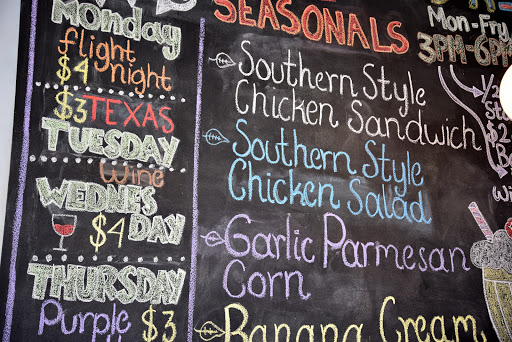 Monday
flight
$4 night
$3 TEXAS
TUESDAY
Wine
WEDNES
$4 DAY
THURSDAY
Purple $3
SEASONALS
Southern Style
Chicken Sandwich
Southern Style
Chicken Salad
Garlic Parmesan
Corn
Banana Cream
Mon-Fry
3PM-6PM
1/2
$2